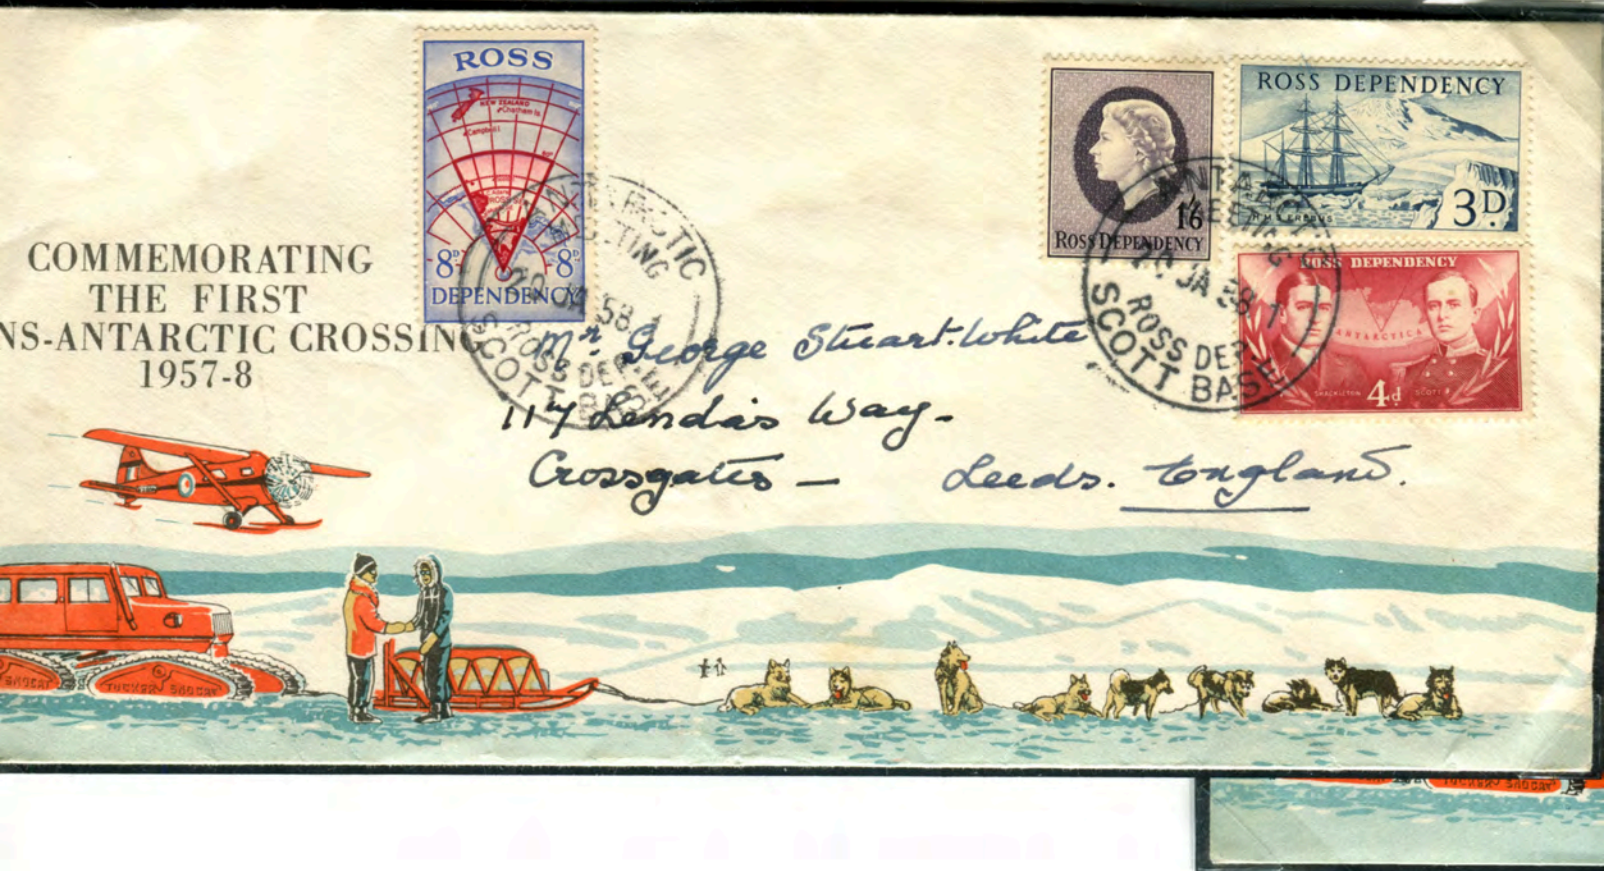 COMMEMORATING
THE FIRST
NS-ANTARCTIC CROSSING
1957-8
ROSS
NEW ZEALAND
Chatham Is
Campbell I.
8D 8D
DEPENDENCY
ANTARCTIC
MEETING
20 JA 58
ROSS DEP.
SCOTT BASE
1/6
ROSS DEPENDENCY
ROSS DEPENDENCY
H.M.S. EREBUS
3D.
ROSS DEPENDENCY
ANTARCTICA
SHACKLETON 4d SCOTT
MEETING
20 JA 58
ROSS DEP.
SCOTT BASE
Mr George Stuart-White
117 Lendas Way-
Crossgates - Leeds. England.
SNOCAT
TUCKER SNOCAT
TUCKER SNOCAT